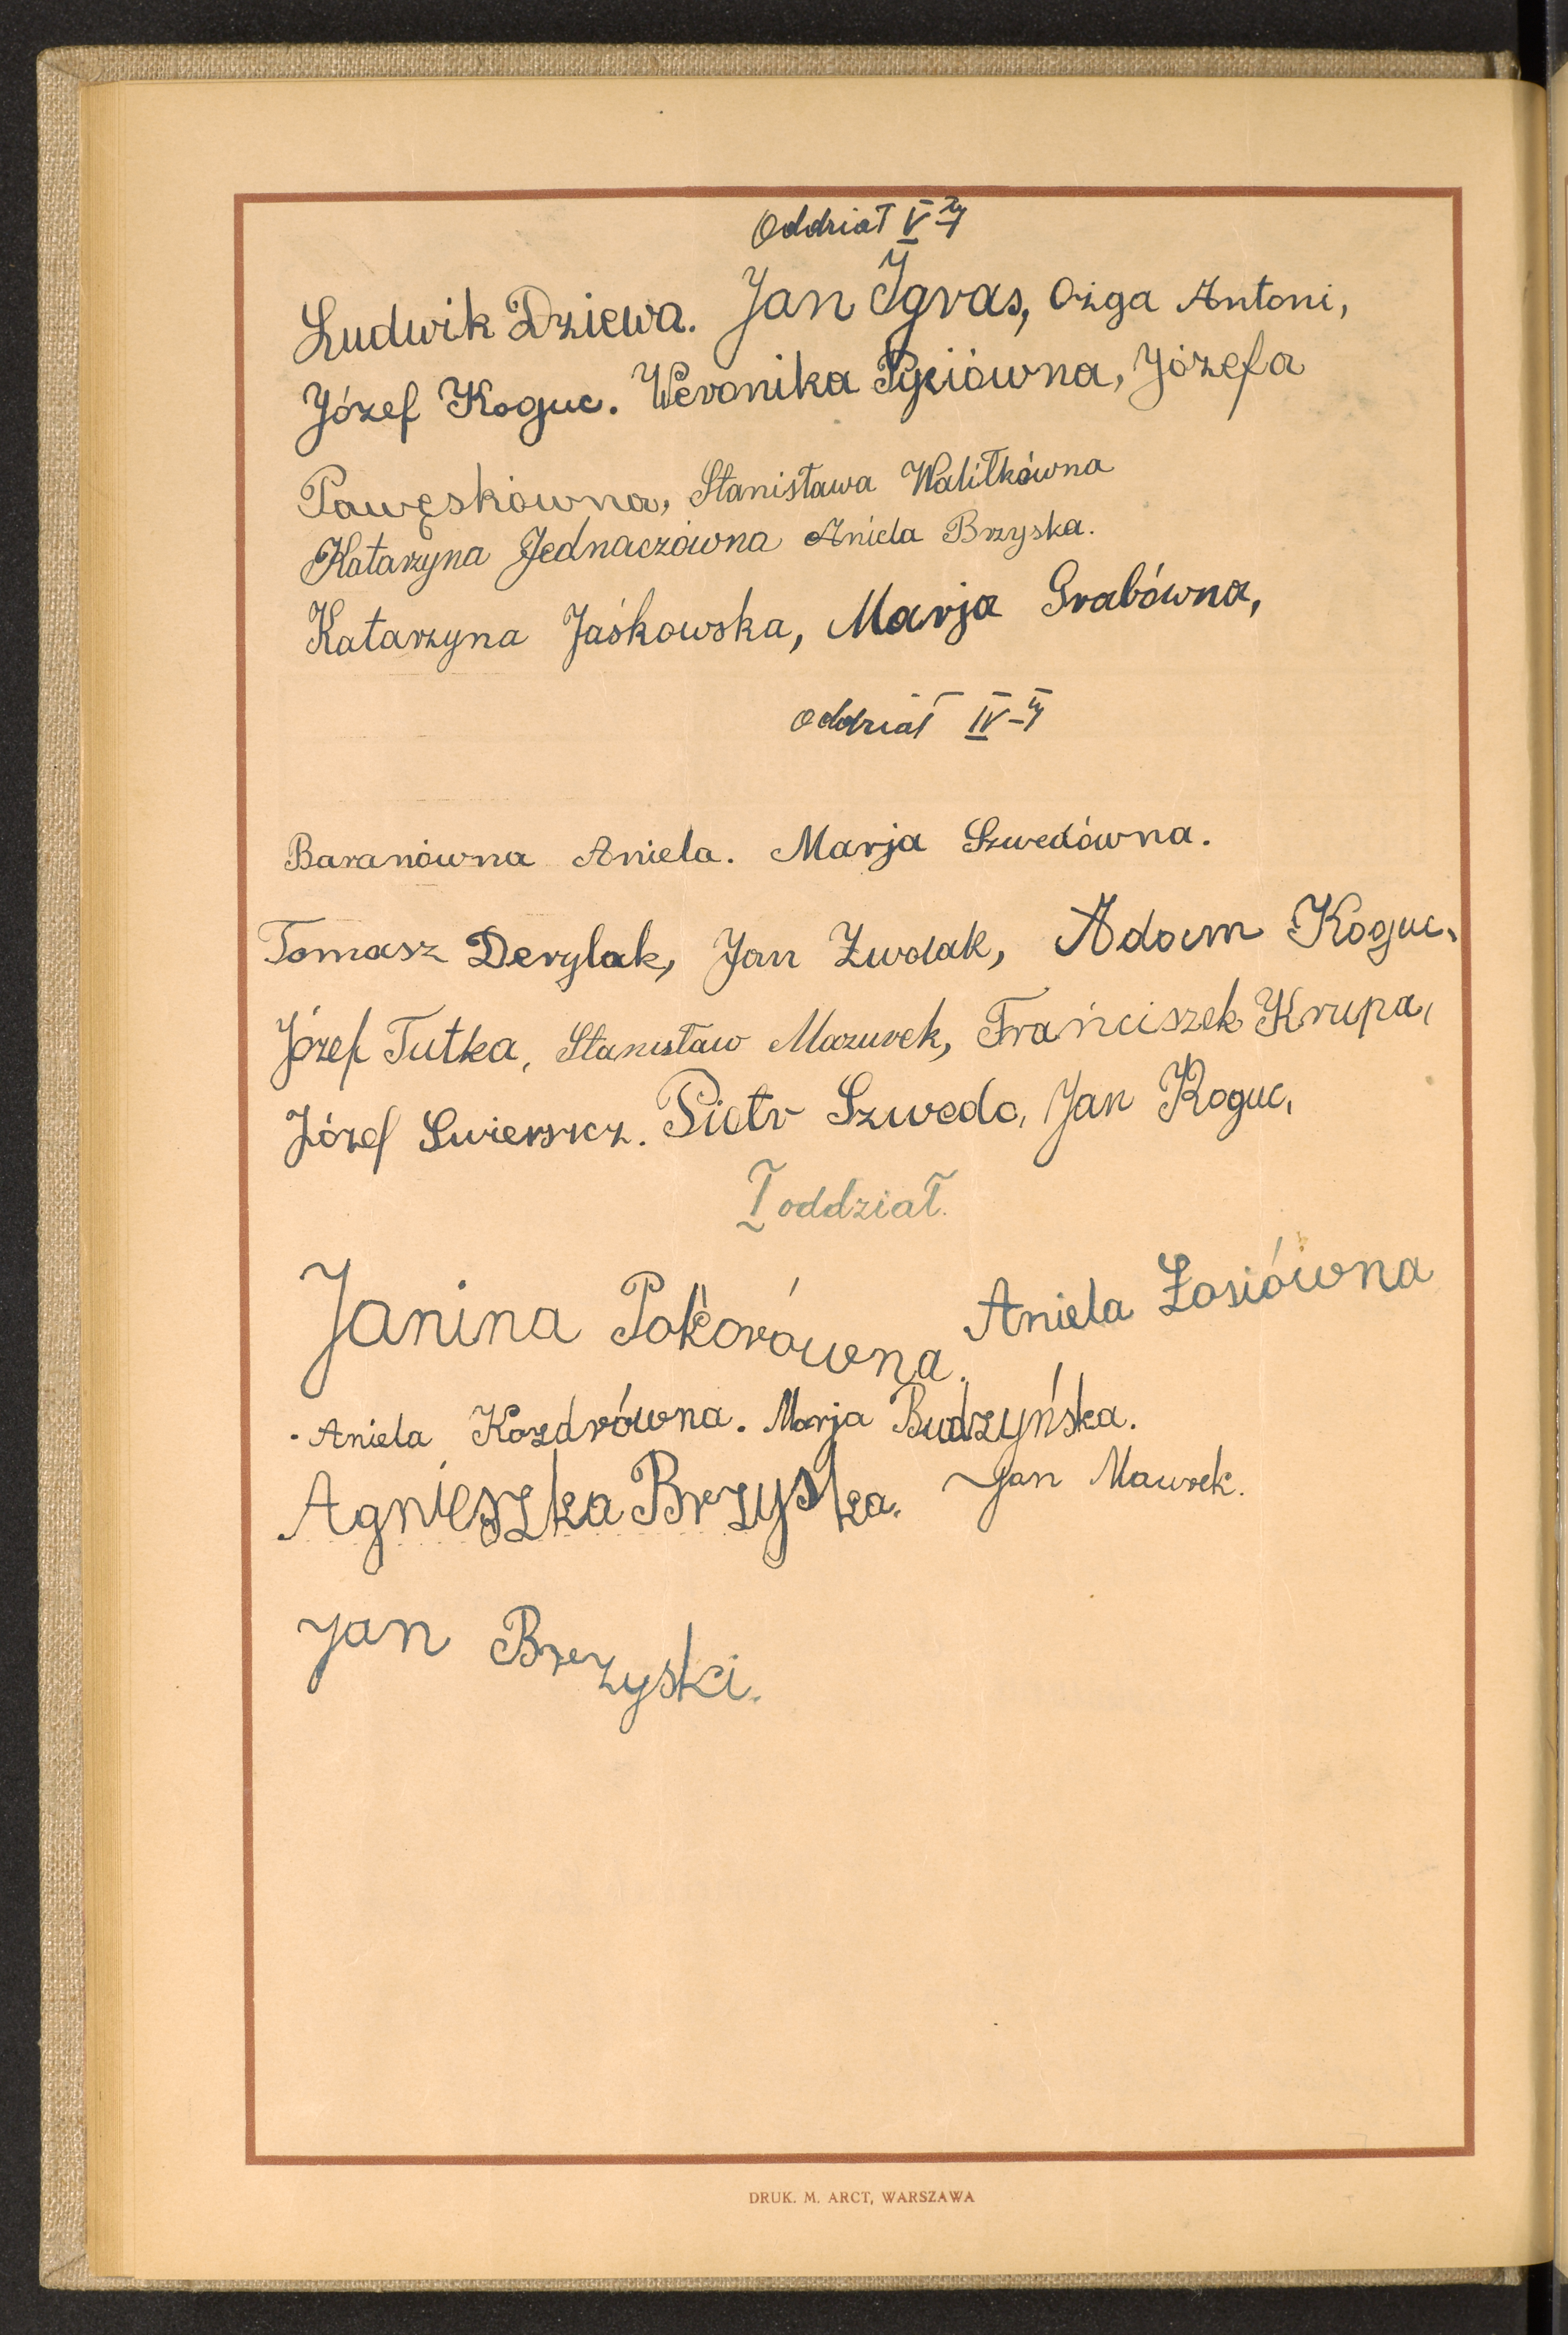 Oddział V-ty
Ludwik Dziewa. Jan Igras, Ożga Antoni,
Józef Koguc. Weronika Pyciówna, Józefa
Pawęskówna, Stanisława Walitkówna
Katarzyna Jednaczówna Aniela Brzyska.
Katarzyna Jaśkowska, Marja Grabówna,
Oddział IV-ty
Baranówna Aniela. Marja Szwedówna.
Tomasz Derylak, Jan Zwolak, Adam Koguc.
Józef Tutka, Stanisław Mazurek, Frańciszek Krupa,
Józef Swierszcz. Piotr Szwedo, Jan Koguc,
I oddział.
Janina Pokorówna. Aniela Łosiówna
Aniela Kozdrówna. Marja Budzyńska.
Agnieszka Brzyska. Jan Mawrek.
Jan Brzyski.
DRUK. M. ARCT, WARSZAWA